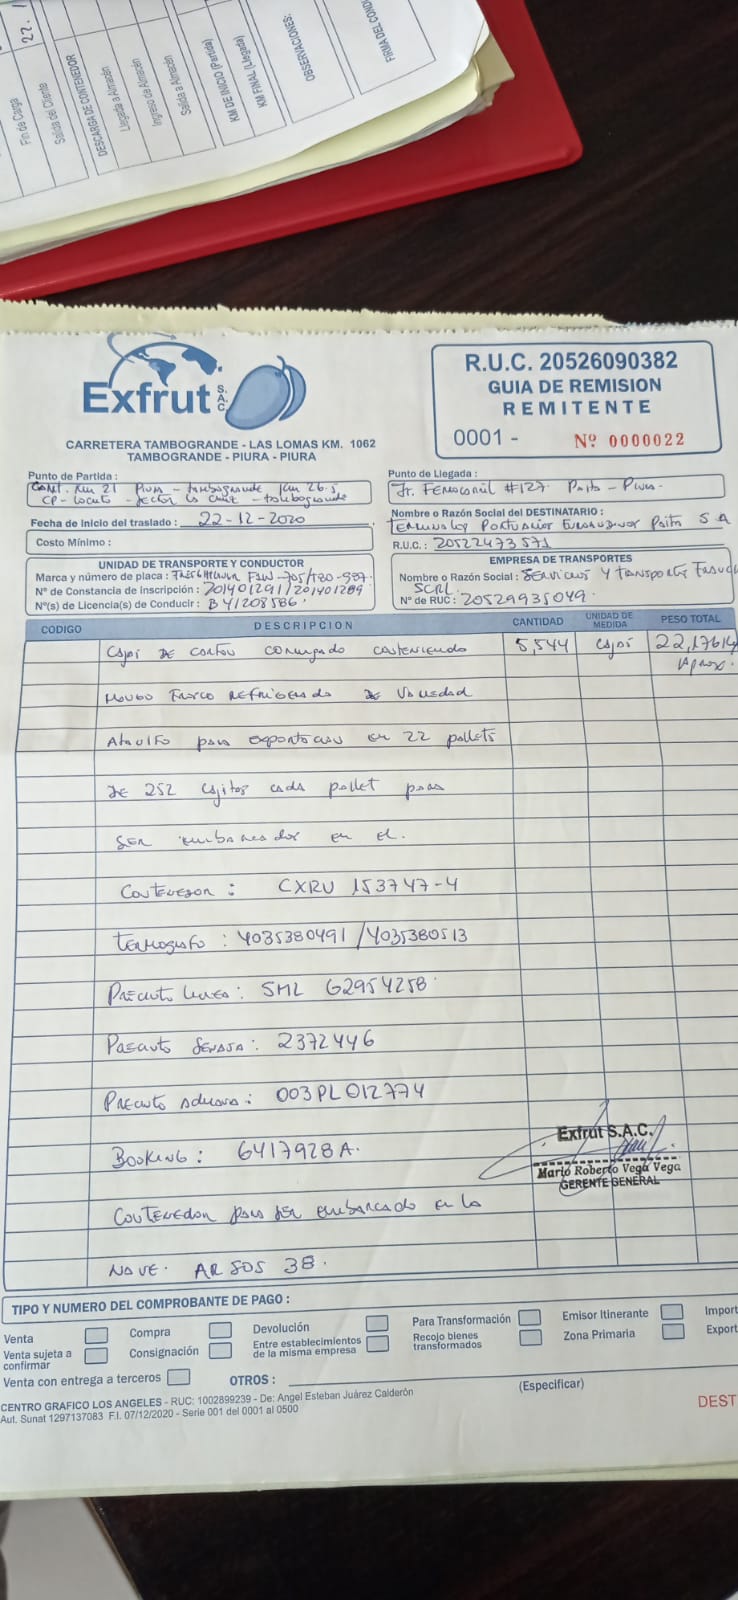 22.1
Fin de Carga
Salida del Cliente
DESCARGA DE CONTENEDOR
Llegada a Almacén
Ingreso de Almacén
Salida a Almacén
KM DE INICIO (Partida)
KM FINAL (Llegada)
OBSERVACIONES:
FIRMA DEL COND
Exfrut S.A.C
CARRETERA TAMBOGRANDE - LAS LOMAS KM. 1062
TAMBOGRANDE - PIURA - PIURA
R.U.C. 20526090382
GUIA DE REMISION
REMITENTE
0001 - Nº 0000022
Punto de Partida :
Carret. Km 21 Piura - tambogrande Km 26.5
CP - Locuto - Sector La Cruz - tambogrande
Punto de Llegada :
Jr. Ferrocarril #127 Paita - Piura.
Fecha de Inicio del traslado : 22-12-2020
Costo Mínimo :
Nombre o Razón Social del DESTINATARIO :
Terminales Portuarios Euroandinos Paita S A
R.U.C. : 20522473571
UNIDAD DE TRANSPORTE Y CONDUCTOR
Marca y número de placa : Freightliner F3W-705/T80-987
Nº de Constancia de Inscripción : 201401291/201401289
Nº(s) de Licencia(s) de Conducir : B41208586
EMPRESA DE TRANSPORTES
Nombre o Razón Social : Servicios y Transportes
SCRL
Nº de RUC : 20529935049
CODIGO DESCRIPCION CANTIDAD UNIDAD DE MEDIDA PESO TOTAL
Cajas de carton corrugado conteniendo 5,544 cajas 22,176 Kg
Mango Fresco Refrigerado de Variedad Aprox.
Ataulfo para exportacion en 22 pallets
de 252 cajitas cada pallet para
ser embarcados en el.
Contenedor : CXRU 153747-4
Termografo : 4035380491 / 4035380513
Precinto Linea : SML G2954258
Precinto Senasa : 2372446
Precinto Aduana : 003PL012774
Booking : 6417928A.
Exfrut S.A.C.
Mario Roberto Vega Vega
GERENTE GENERAL
Contenedor para ser embarcado en la
NAVE. AR SOS 38.
TIPO Y NUMERO DEL COMPROBANTE DE PAGO :
Venta Compra Devolución Para Transformación Emisor Itinerante Import
Venta sujeta a confirmar Consignación Entre establecimientos de la misma empresa Recojo bienes transformados Zona Primaria Export
Venta con entrega a terceros OTROS :
(Especificar)
CENTRO GRAFICO LOS ANGELES - RUC: 1002899239 - De: Angel Esteban Juárez Calderón
Aut. Sunat 1297137083 F.I. 07/12/2020 - Serie 001 del 0001 al 0500
DEST